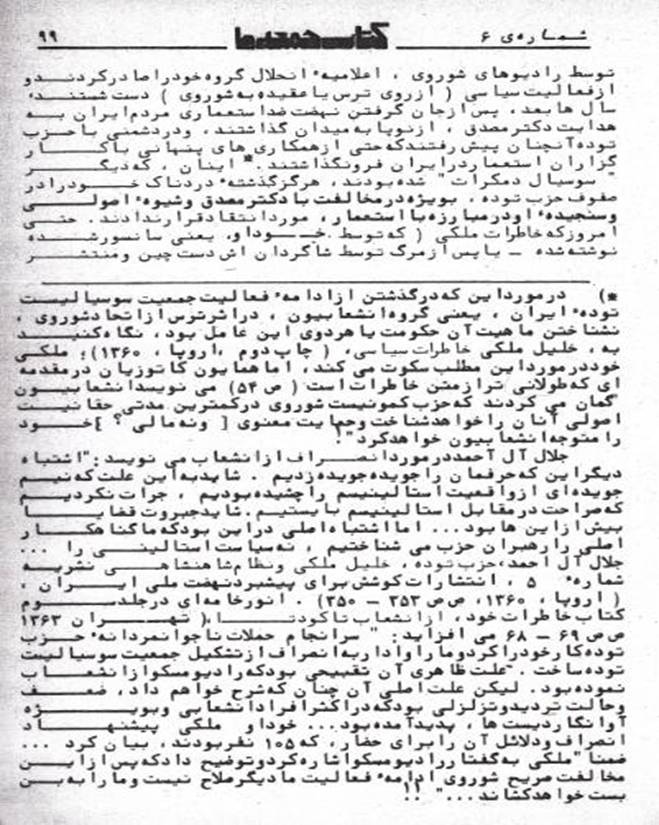 شماره‌ی ۶ کتاب جمعه‌ها ۹۹
توسط رادیوهای شوروی ، اعلامیهٔ انحلال گروه خود را صادر کردند و
از فعالیت سیاسی ( از روی ترس یا عقیده به شوروی ) دست شستند.
سال ها بعد، پس از جان گرفتن نهضت ضد استعماری مردم ایران به
هدایت دکتر مصدق ، از نو پا به میدان گذاشتند ، و در دشمنی با حزب
توده آنچنان پیش رفتند که حتی از همکاری های پنهانی با کار
گزاران استعمار در ایران فروگذاشتند.* اینان ، که دیگر
"سوسیال دمکرات" شده بودند، هرگز گذشتهٔ دردناک خود را در
صفوف حزب توده ، بویژه در مخالفت با دکتر مصدق و شیوهٔ اصولی
و سنجیدهٔ او در مبارزه با استعمار، مورد انتقاد قرار ندادند. حتی
امروز که خاطرات ملکی ( که توسط خود او، یعنی سانسور شده
نوشته شده – یا پس از مرگ توسط شاگردان اش دست چین و منتشر
*) در مورد این که در گذشتن از ادامهٔ فعالیت جمعیت سوسیالیست
تودهٔ ایران ، یعنی گروه انشعابیون ، در اثر ترس از اتحاد شوروی ،
نشناختن ماهیت آن حکومت یا هر دوی این عامل بود، نگاه کنید
به ، خلیل ملکی خاطرات سیاسی، ( چاپ دوم ،اروپا ، ۱۳۶۰)؛ ملکی
خود در مورد این مطلب سکوت می کند، اما همایون کاتوزیان در مقدمه
ای که طولانی تر از متن خاطرات است ( ص ۵۴) می نویسد انشعابیون
"گمان می کردند که حزب کمونیست شوروی در کمترین مدتی حقانیت
اصولی آنان را خواهد شناخت و حمایت معنوی [ و نه مالی ؟ ] خود
را متوجه انشعابیون خواهد کرد"!
جلال آل احمد در مورد انصراف از انشعاب می نویسد: "اشتباه
دیگر این که حرفمان را جویده جویده زدیم . شاید به این علت که نیم
جویده ای از واقعیت استالینیسم را چشیده بودیم ، جرات نکردیم
که صراحت در مقابل استالینیسم بایستیم . شاید جبروت قضایا
بیش از این ها بود... اما اشتباه اصلی در این بود که ما گناهکار
اصلی را رهبران حزب می شناختیم ، نه سیاست استالینی را ...
جلال آل احمد،حزب توده ، خلیل ملکی و نظام شاهنشاهی نشریه
شمارهٔ ۵ ، انتشارات کوشش برای پیشبرد نهضت ملی ایران ،
( اروپا ، ۱۳۶۰، ص ص ۳۵۳ – ۳۵۰) . انور خامه ای در جلد سوم
کتاب خاطرات خود، از انشعاب تا کودتا ،( تهران ۱۳۶۳
ص ص ۶۹ – ۶۸ می افزاید: " سرانجام حملات ناجوانمردانهٔ حزب
توده کار خود را کرد و ما را وادار به انصراف از تشکیل جمعیت سوسیالیست
توده ساخت . علت ظاهری آن تقبیحی بود که رادیو مسکو از انشعاب
نموده بود. لیکن علت اصلی آن چنان که شرح خواهم داد، ضعف
و حالت تردید و تزلزلی بود که در اکثر افراد انشعابی و بویژه
آوانگاردیست ها ، پدید آمده بود... خود او ملکی پیشنهاد
انصراف و دلائل آن را برای حضار، که ۱۰۵ نفر بودند، بیان کرد ...
ضمنا "ملکی به گفتار رادیو مسکو اشاره کرد و توضیح داد که پس از این
مخالفت صریح شوروی ادامهٔ فعالیت ما دیگر صلاح نیست و ما را به بن
بست خواهد کشاند..." !!